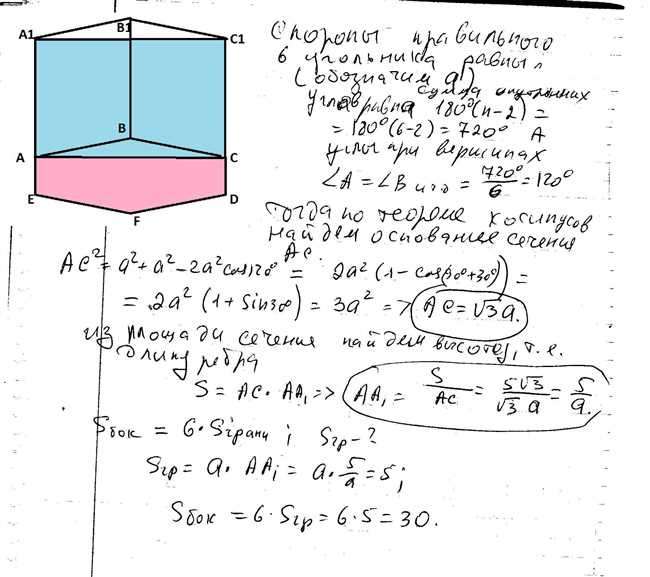 A1
B1
C1
B
A
C
E
D
F
Стороны правильного
6 угольника равны
(обозначим a)
сумма внутренних
углов равна 180°(n-2) =
= 180°(6-2) = 720° А
углы при вершинах
∠A = ∠B и т о = 720°/6 = 120°
Тогда по теореме косинусов
найдем основание сечения
AC.
AC² = a² + a² - 2a² cos120° = 2a² (1 - cos(90°+30°)) =
= 2a² (1 + sin30°) = 3a² => AC = √3 a.
из площади сечения найдем высоту, т.е.
длину ребра
S = AC · AA₁ => AA₁ = S/AC = 5√3/√3 a = 5/a.
Sбок = 6 · Sграни ; Sгр - ?
Sгр = a · AA₁ = a · 5/a = 5;
Sбок = 6 · Sгр = 6 · 5 = 30.